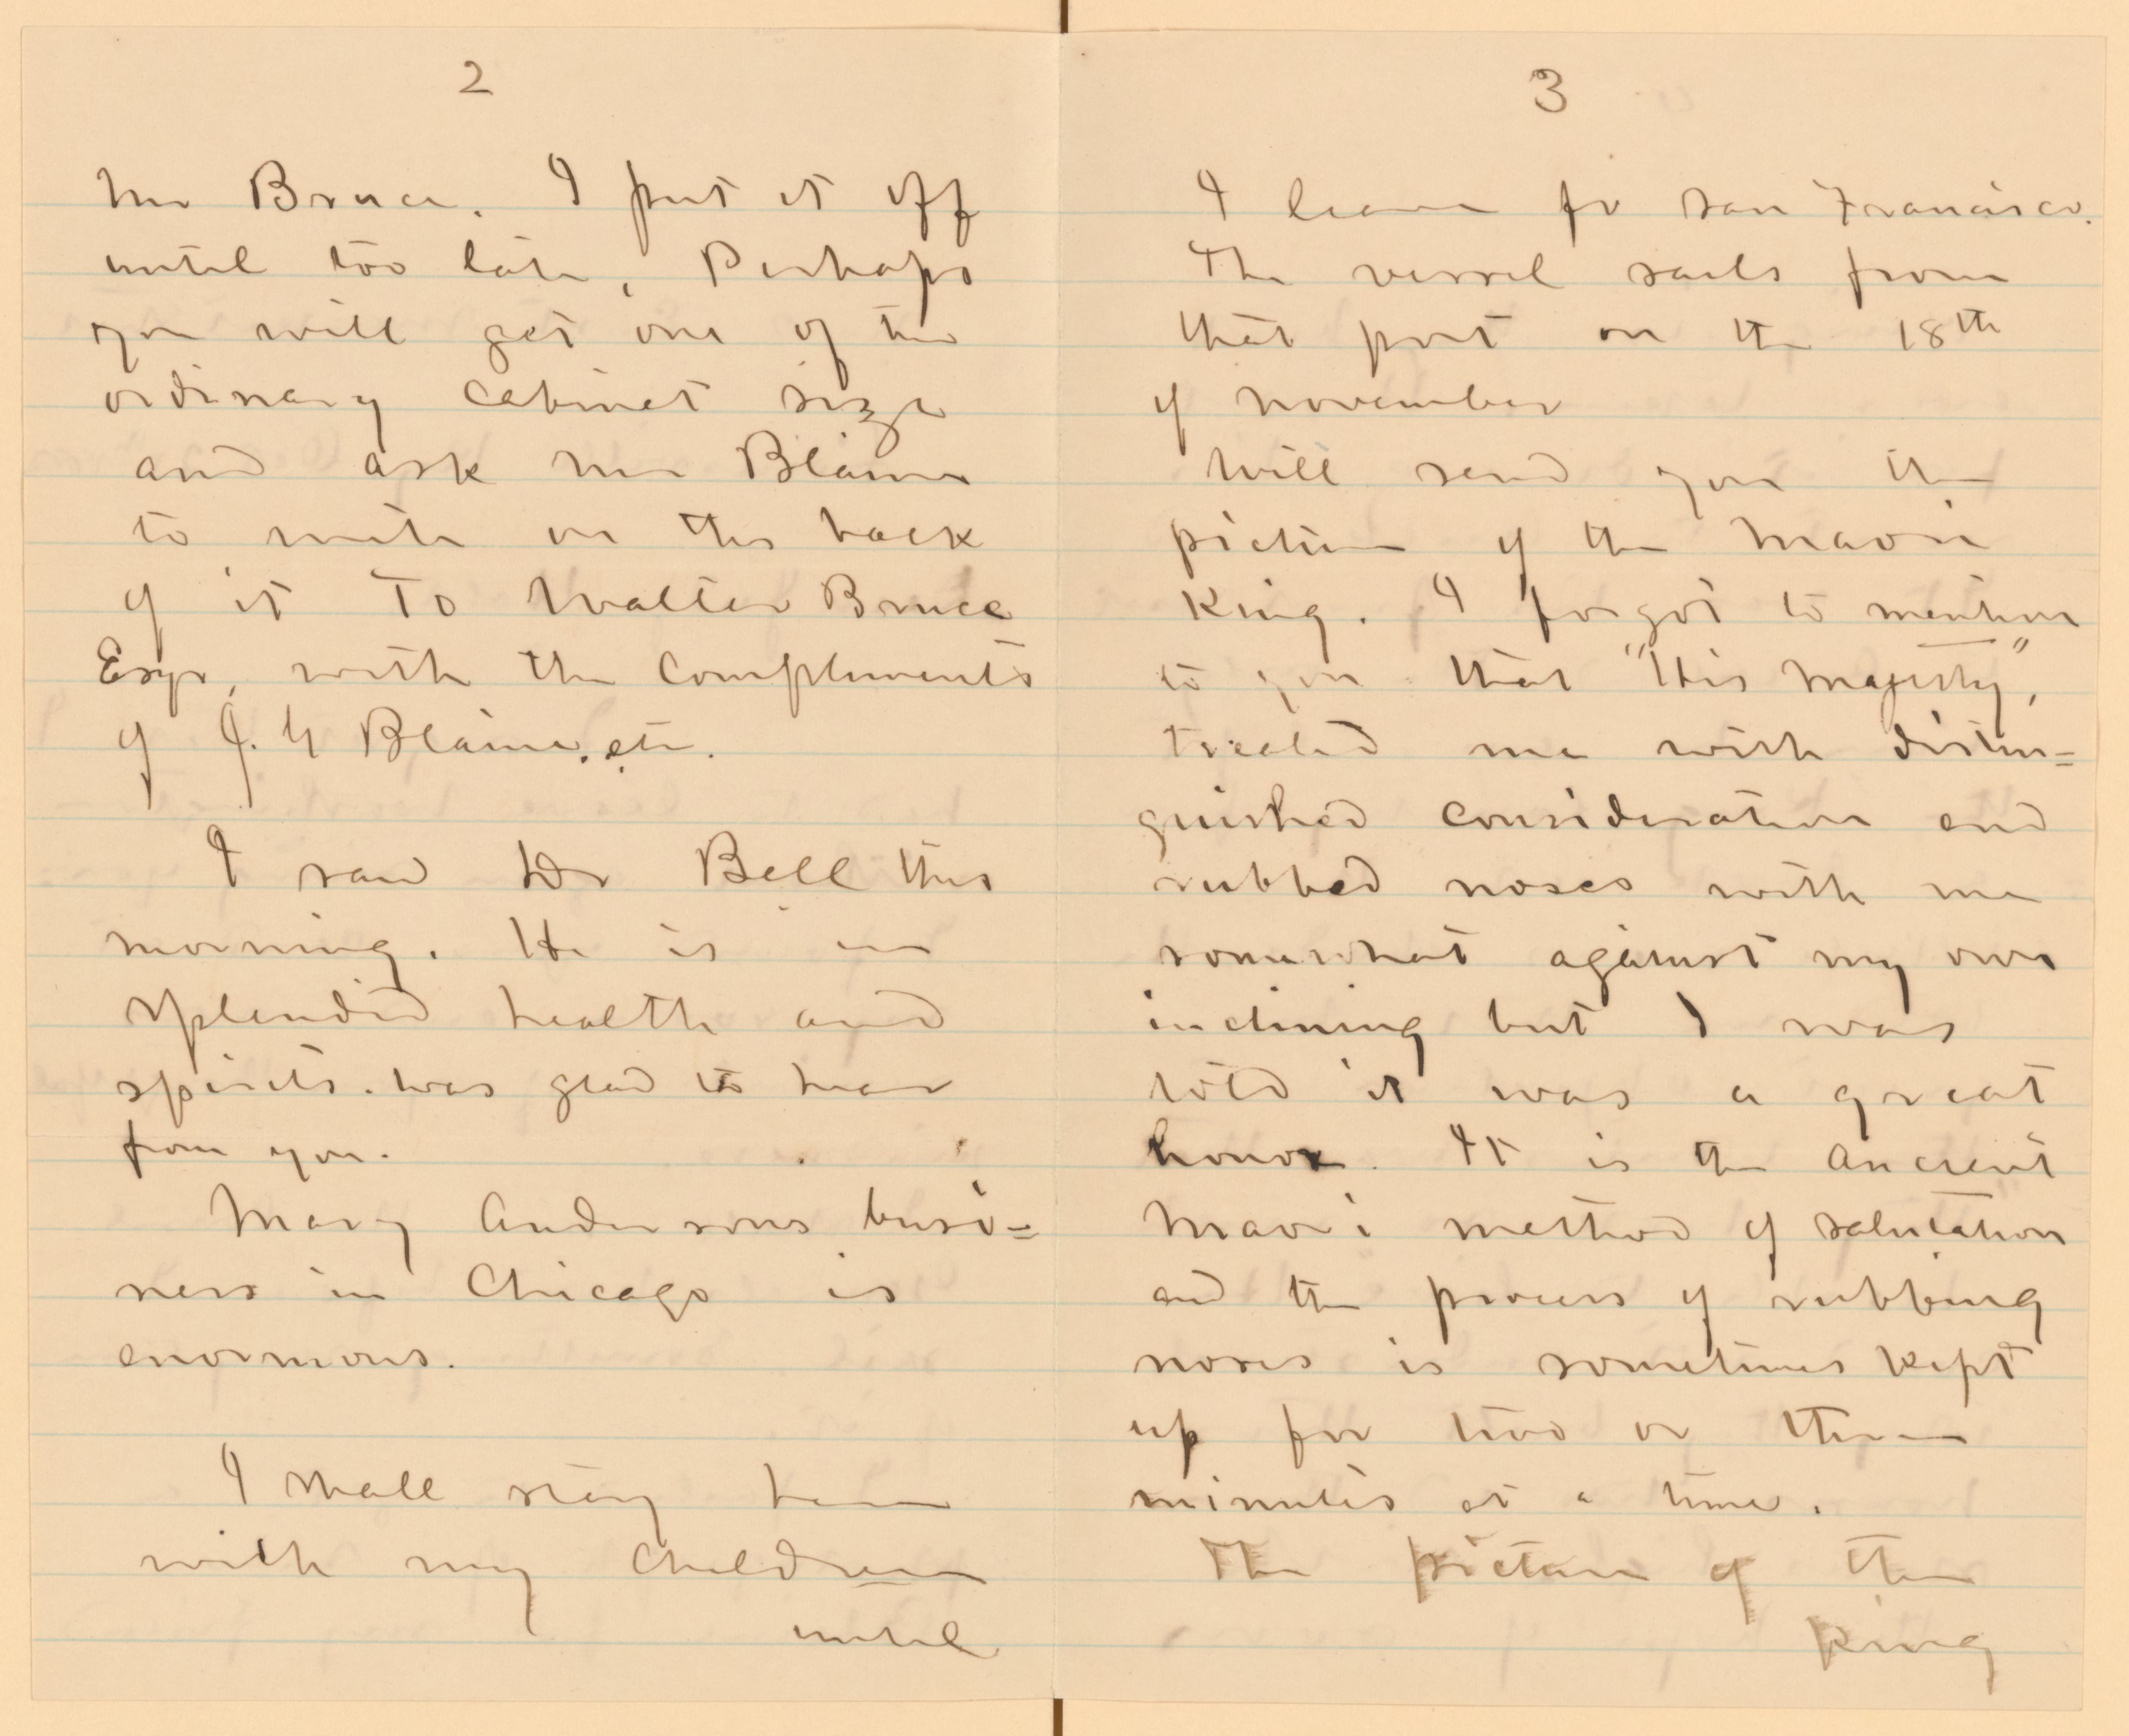 2
Mr Bruce. I put it off
until too late. Perhaps
you will get one of the
ordinary cabinet size
and ask Mr Blaine
to write on the back
of it To Walter Bruce
Esqr, with the compliments
of J. G Blaine, etc.
I saw Dr Bell this
morning. He is in
splendid health and
spirits. Was glad to hear
from you.
Mary Andersons busi=
ness in Chicago is
enormous.
I shall stay here
with my children
until
3
I leave for San Francisco.
The vessel sails from
that port on the 18th
of November
Will send you the
picture of the Maori
King. I forgot to mention
to you that "His Majesty",
treated me with distin=
guished consideration and
rubbed noses with me
somewhat against my own
inclining but I was
told it was a great
honor. It is the ancient
Maori method of salutation
and the process of rubbing
noses is sometimes kept
up for two or three
minutes at a time.
The picture of the
King